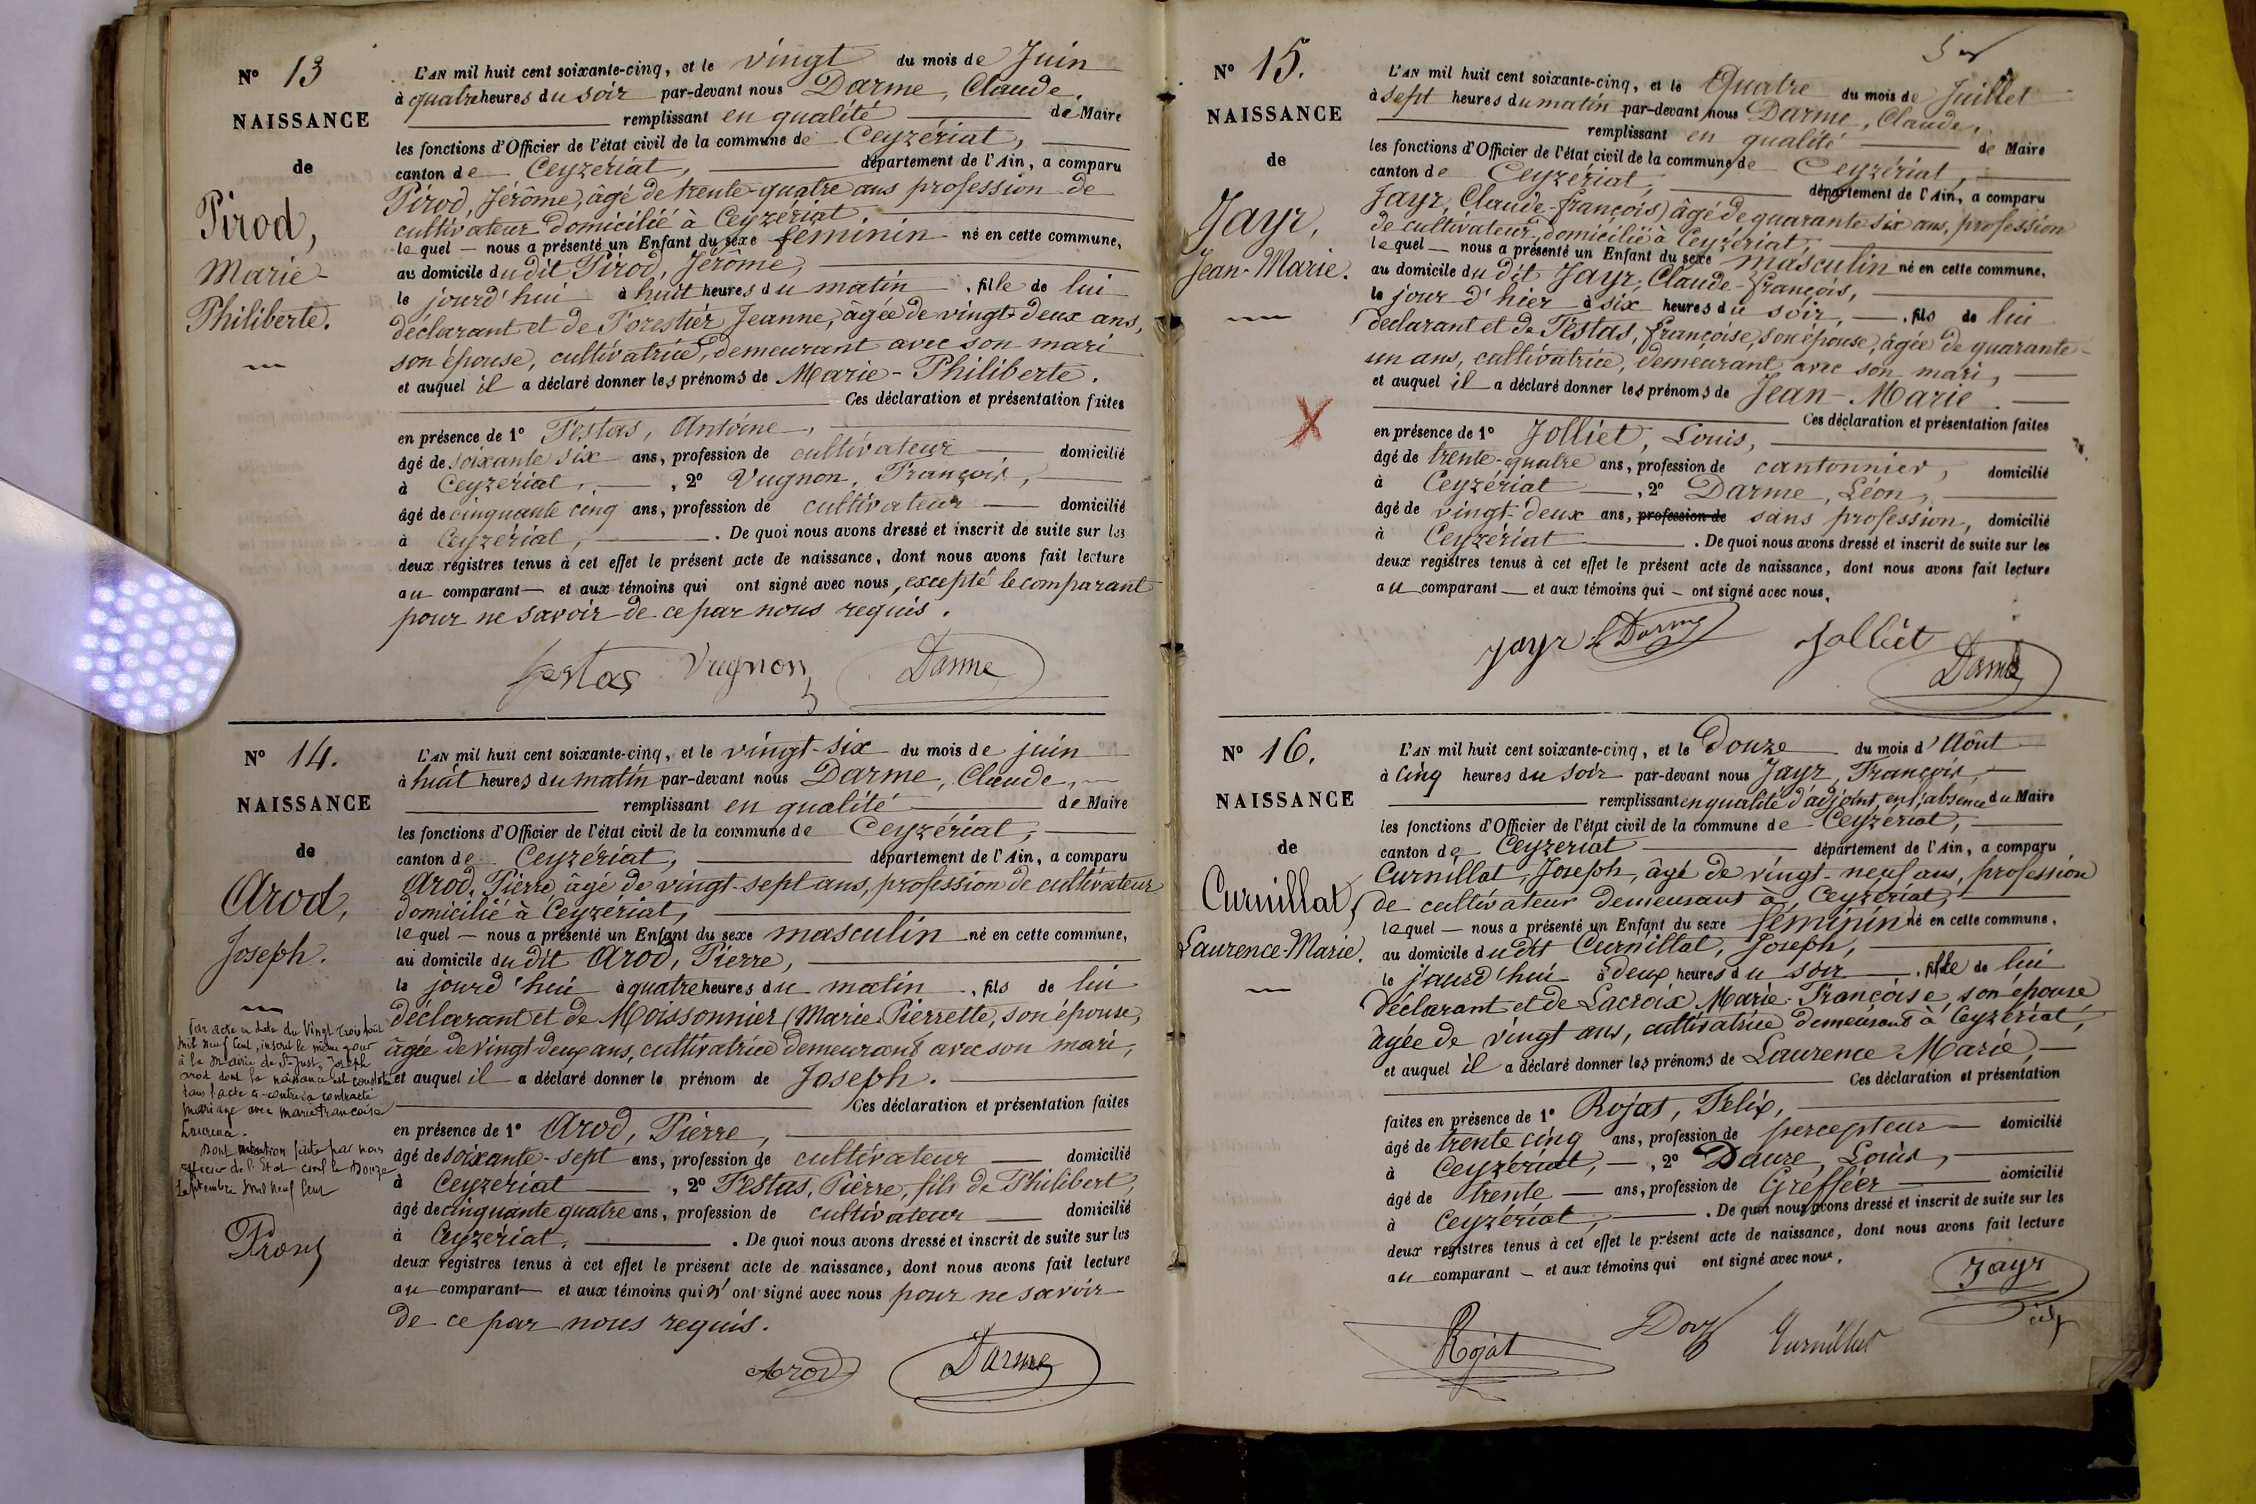 N° 13
NAISSANCE
de
Pirod,
Marie-
Philiberte.
L'AN mil huit cent soixante-cinq, et le vingt du mois de Juin
à quatre heures du soir par-devant nous Darme, Claude,
remplissant en qualité de Maire
les fonctions d'Officier de l'état civil de la commune de Ceyzériat,
canton de Ceyzériat, département de l'Ain, a comparu
Pirod, Jérôme, âgé de trente-quatre ans profession de
cultivateur domicilié à Ceyzériat.
lequel — nous a présenté un Enfant du sexe féminin né en cette commune,
au domicile dudit Pirod, Jérôme,
le jourd'hui à huit heures du matin, fille de lui
déclarant et de Forestier Jeanne, âgée de vingt-deux ans,
son épouse, cultivatrice, demeurant avec son mari
et auquel il a déclaré donner les prénoms de Marie-Philiberte.
Ces déclaration et présentation faites
en présence de 1° Testas, Antoine,
âgé de soixante six ans, profession de cultivateur domicilié
à Ceyzériat, , 2° Vugnon, François,
âgé de cinquante cinq ans, profession de cultivateur domicilié
à Ceyzériat, . De quoi nous avons dressé et inscrit de suite sur les
deux registres tenus à cet effet le présent acte de naissance, dont nous avons fait lecture
au comparant — et aux témoins qui ont signé avec nous, excepté le comparant
pour ne savoir de ce par nous requis.
Testas Vugnon Darme
N° 14.
NAISSANCE
de
Arod,
Joseph.
Par acte en date du Vingt trois juin
mil neuf cent, inscrit le même jour
à la Mairie de St Just, Joseph
Arod dont la naissance est constatée
dans l'acte ci-contre a contracté
mariage avec Marie Françoise
Dont mention faite par nous
officier de l'Etat civil le Douze
Septembre mil neuf cent
L'AN mil huit cent soixante-cinq, et le vingt-six du mois de juin
à huit heures du matin par-devant nous Darme, Claude,
remplissant en qualité de Maire
les fonctions d'Officier de l'état civil de la commune de Ceyzériat,
canton de Ceyzériat, département de l'Ain, a comparu
Arod, Pierre âgé de vingt-sept ans, profession de cultivateur
domicilié à Ceyzériat,
lequel — nous a présenté un Enfant du sexe masculin né en cette commune,
au domicile dudit Arod, Pierre,
le jourd'hui à quatre heures du matin, fils de lui
déclarant et de Moissonnier (Marie Pierrette, son épouse,
âgée de vingt deux ans, cultivatrice demeurant avec son mari,
et auquel il a déclaré donner le prénom de Joseph.
Ces déclaration et présentation faites
en présence de 1° Arod, Pierre,
âgé de soixante-sept ans, profession de cultivateur domicilié
à Ceyzériat , 2° Testas, Pierre, fils de Philibert,
âgé de cinquante quatre ans, profession de cultivateur domicilié
à Ceyzériat, . De quoi nous avons dressé et inscrit de suite sur les
deux registres tenus à cet effet le présent acte de naissance, dont nous avons fait lecture
au comparant — et aux témoins qui n'ont signé avec nous pour ne savoir
de ce par nous requis.
Arod Darme
N° 15.
NAISSANCE
de
Jayr,
Jean-Marie.
L'AN mil huit cent soixante-cinq, et le Quatre du mois de Juillet
à sept heures du matin par-devant nous Darme, Claude,
remplissant en qualité de Maire
les fonctions d'Officier de l'état civil de la commune de Ceyzériat,
canton de Ceyzériat, département de l'Ain, a comparu
Jayr, Claude-françois) âgé de quarante-six ans, profession
de cultivateur, domicilié à Ceyzériat,
lequel — nous a présenté un Enfant du sexe masculin né en cette commune,
au domicile dudit Jayr, Claude-françois,
le jour d'hier à six heures du soir, fils de lui
déclarant et de Testas, françoise, son épouse, âgée de quarante-
un ans, cultivatrice, demeurant avec son mari,
et auquel il a déclaré donner les prénoms de Jean-Marie.
Ces déclaration et présentation faites
en présence de 1° Jolliet, Louis,
âgé de trente-quatre ans, profession de cantonnier, domicilié
à Ceyzériat , 2° Darme, Léon,
âgé de vingt-deux ans, profession de sans profession, domicilié
à Ceyzériat . De quoi nous avons dressé et inscrit de suite sur les
deux registres tenus à cet effet le présent acte de naissance, dont nous avons fait lecture
au comparant — et aux témoins qui — ont signé avec nous.
Jayr L Darme Jolliet
Darme
N° 16.
NAISSANCE
de
Curnillat,
Laurence-Marie.
L'AN mil huit cent soixante-cinq, et le Douze du mois d'Aôut
à cinq heures du soir par-devant nous Jayr, François,
remplissant en qualité d'adjoint, en l'absence du Maire
les fonctions d'Officier de l'état civil de la commune de Ceyzériat,
canton de Ceyzériat département de l'Ain, a comparu
Curnillat, Joseph, âgé de vingt-neuf ans, profession
de cultivateur demeurant à Ceyzériat,
lequel — nous a présenté un Enfant du sexe féminin né en cette commune,
au domicile dudit Curnillat, Joseph,
le jourd'hui à deux heures du soir, fille de lui
déclarant et de Lacroix Marie-Françoise, son épouse
âgée de vingt ans, cultivatrice demeurant à Ceyzériat,
et auquel il a déclaré donner les prénoms de Laurence Marie,
Ces déclaration et présentation
faites en présence de 1° Rojat, Félix,
âgé de trente cinq ans, profession de percepteur domicilié
à Ceyzériat, — , 2° Dauze, Louis,
âgé de trente ans, profession de Greffier domicilié
à Ceyzériat, . De quoi nous avons dressé et inscrit de suite sur les
deux registres tenus à cet effet le présent acte de naissance, dont nous avons fait lecture
au comparant — et aux témoins qui ont signé avec nous.
Jayr
Rojat Curnillat